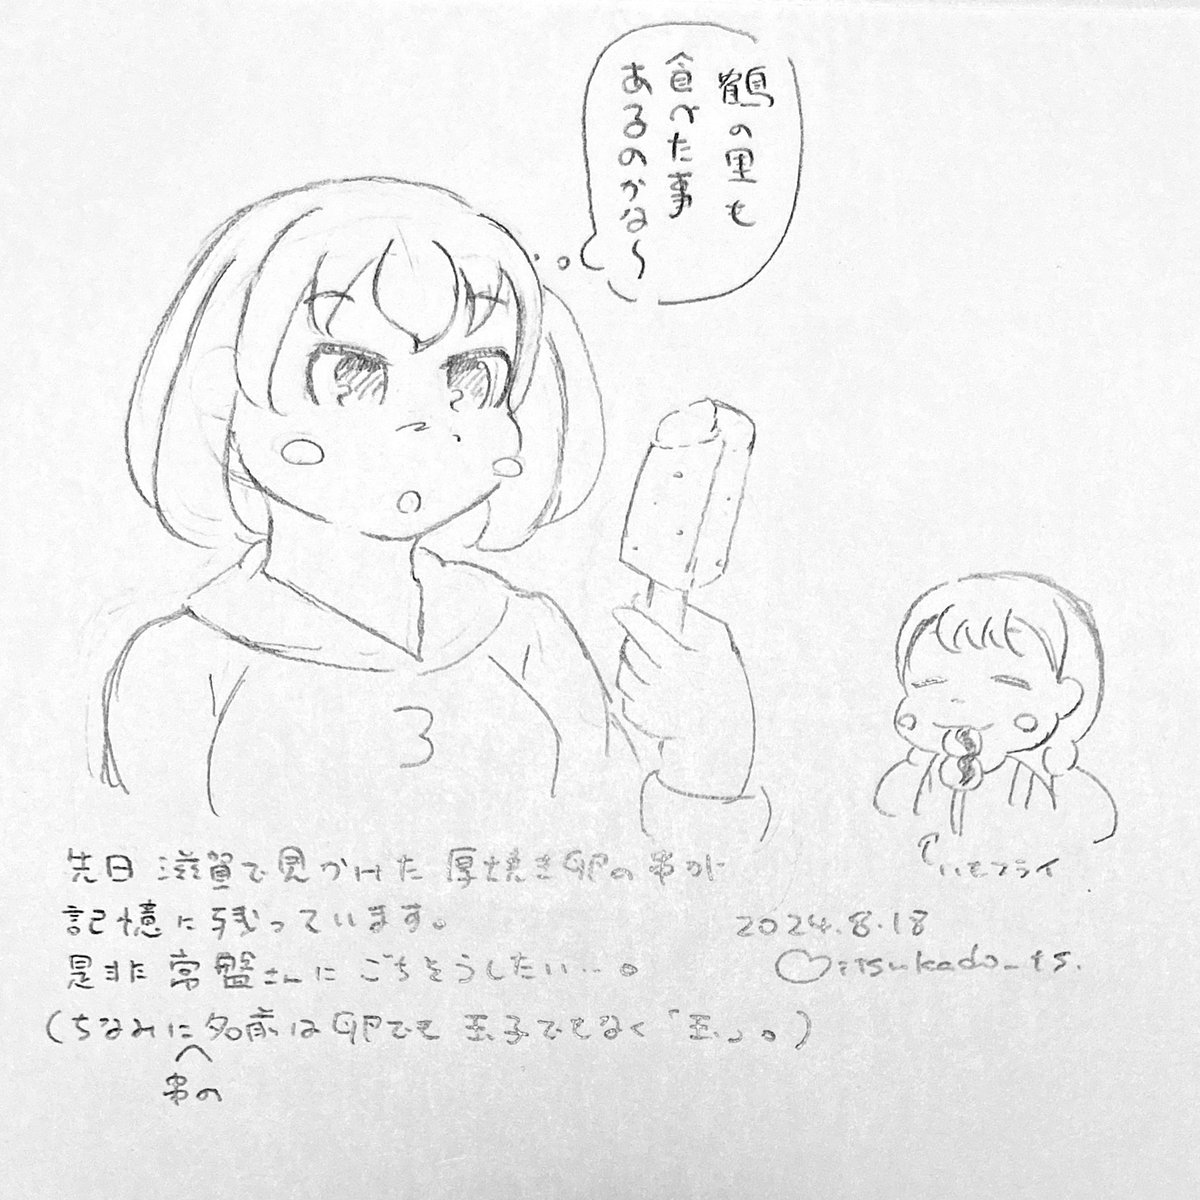 鶴の里も
食べた事
あるのかな〜
3
いもフライ
先日 滋賀で見かけた 厚焼き卵の串が
記憶に残っています。
是非 常盤さんに ごちそうしたい…。
(ちなみに串の名前は卵でも 玉子でもなく「玉」。)
2024.8.18
itsukado_ts.